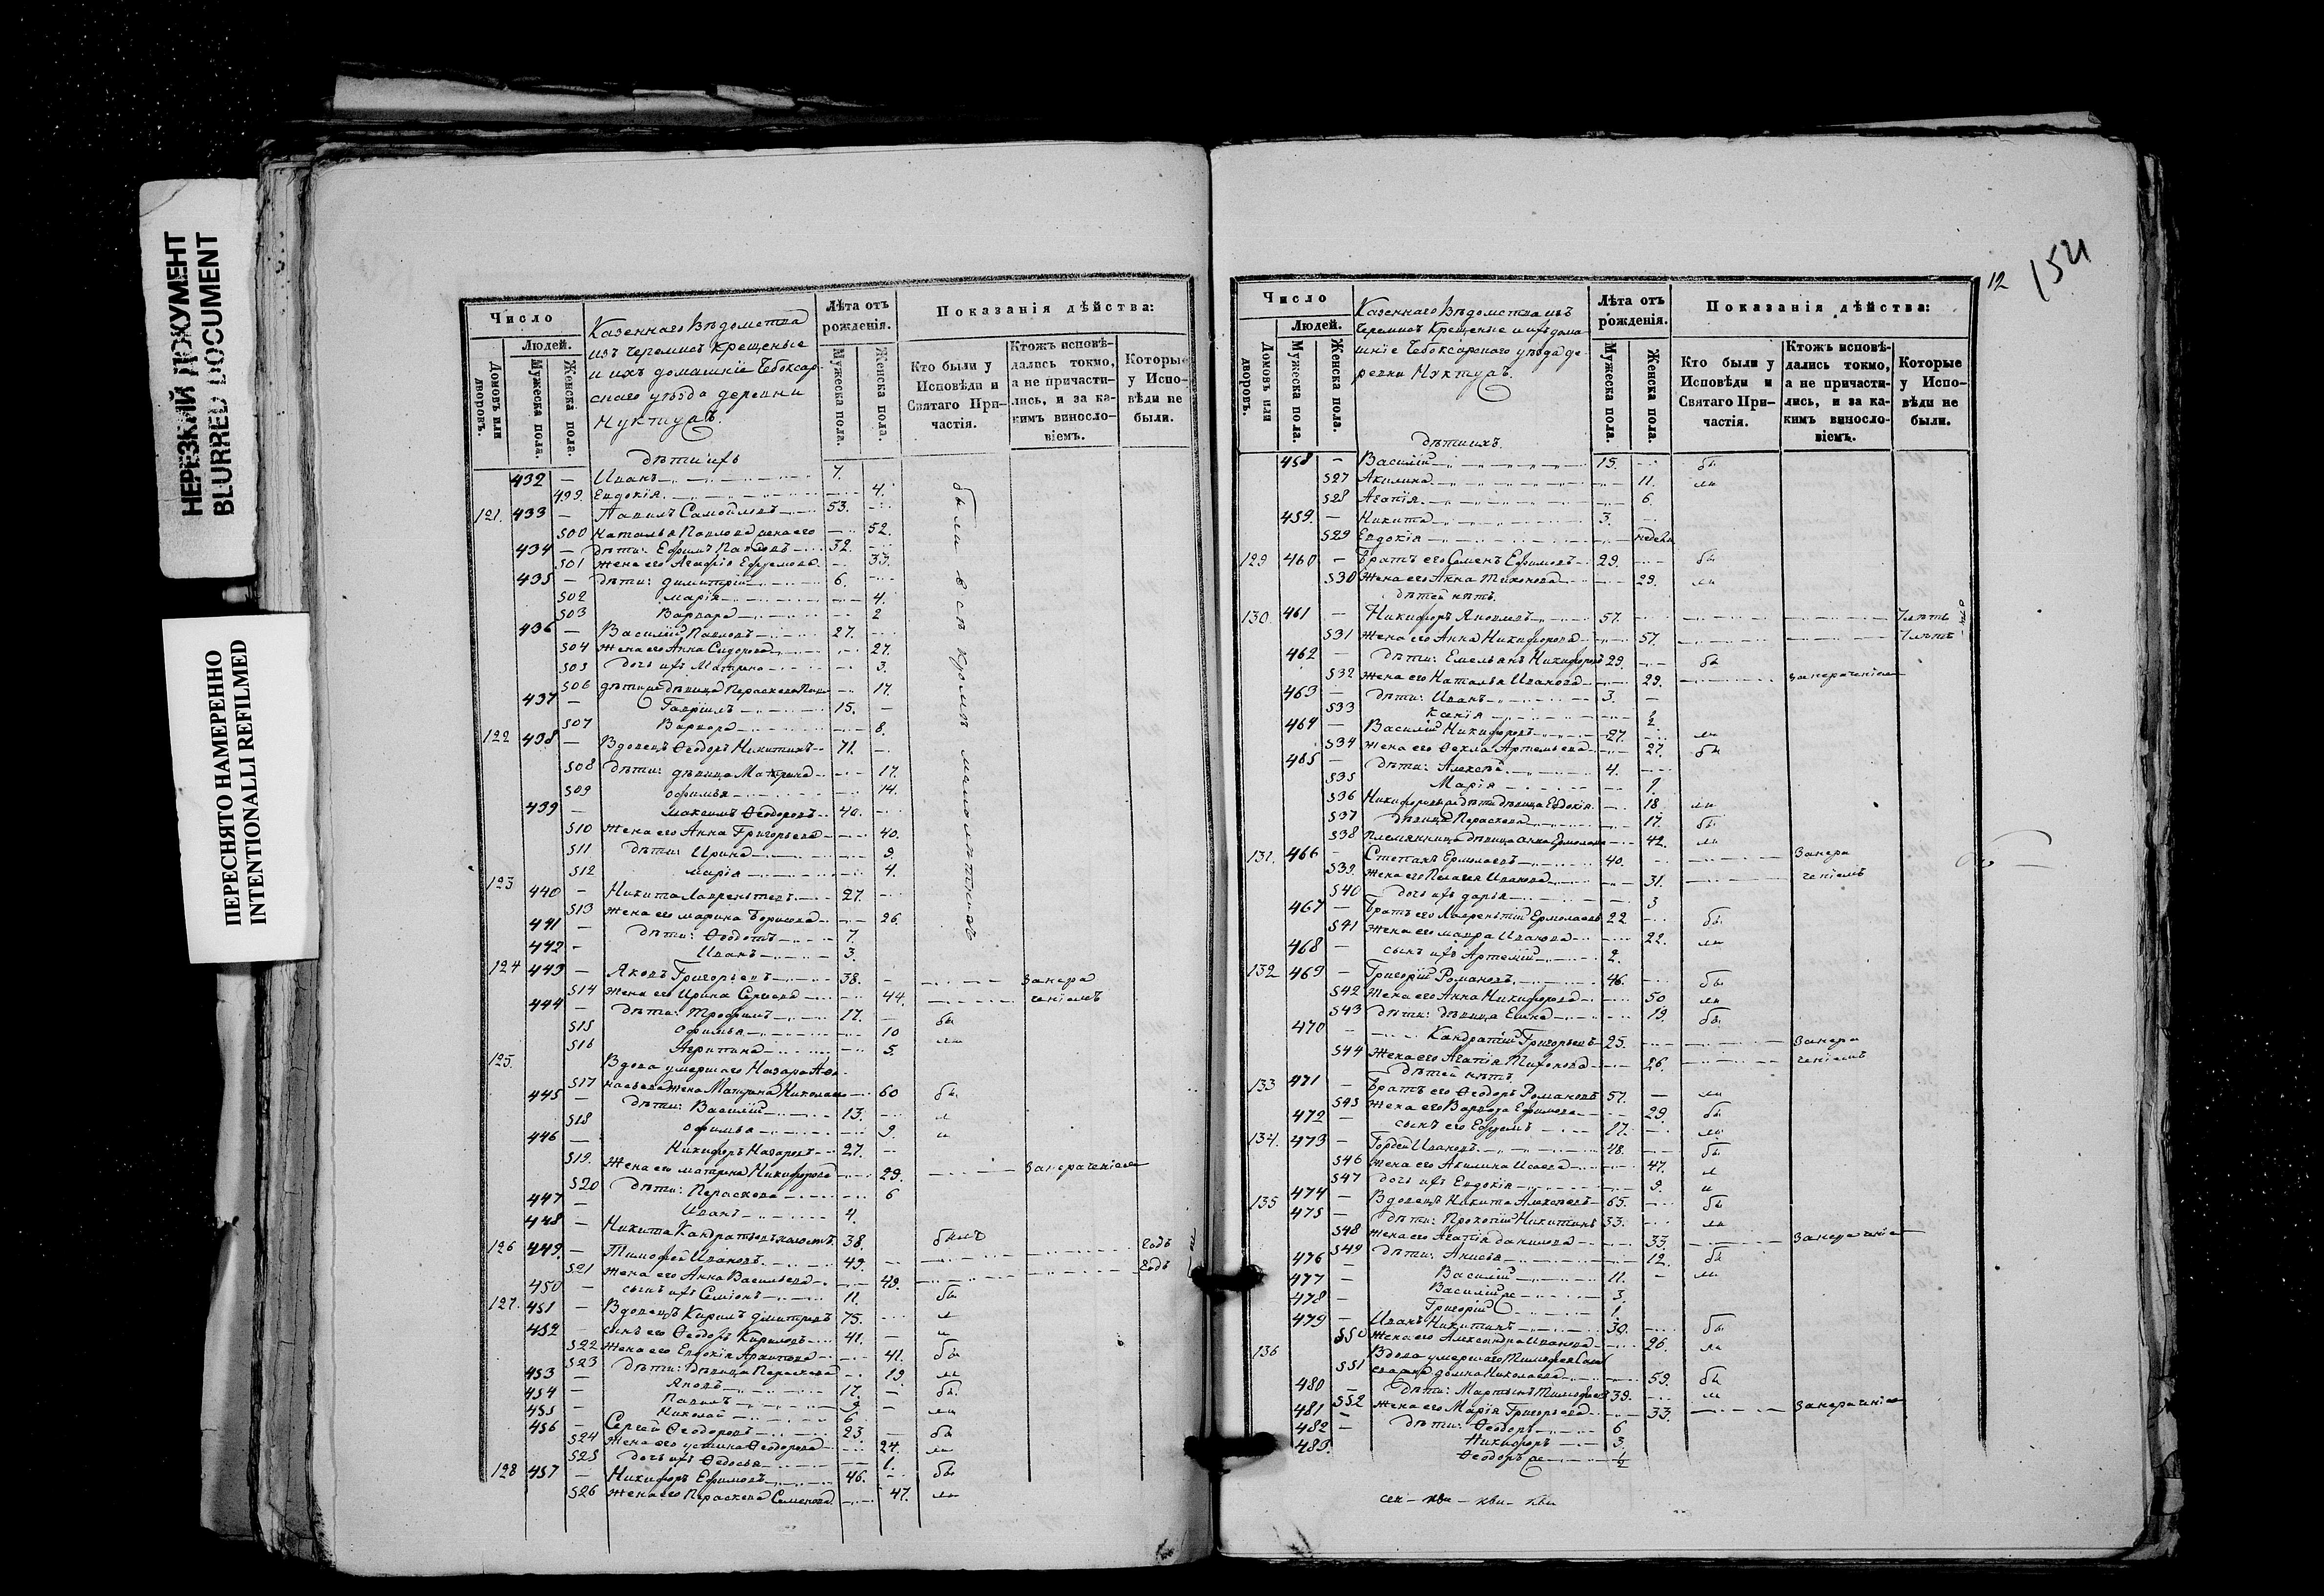 НЕРЕЗКИЙ ДОКУМЕНТ
BLURRED DOCUMENT
ПЕРЕСНЯТО НАМЕРЕННО
INTENTIONALLI REFILMED
Число
Людей.
Домовъ или дворовъ.
Мужеска пола.
Женска пола.
Казеннаго Вѣдомства
изъ Черемисъ Крещеные
и ихъ домашніе Чебоксар-
скаго уѣзда деревни
Нуктужъ.
Лѣта отъ рожденія.
Мужеска пола.
Женска пола.
Показанія дѣйства:
Кто были у Исповѣди и Святаго При-частія.
Ктожъ исповѣ-дались токмо, а не причасти-лись, и за ка-кимъ виносло-віемъ.
Которые у Испо-вѣди не были.
дѣти ихъ
432 — Иванъ 7.
499. Евдокія 4.
121. 433 — Павилъ Самойловъ 53.
500 Наталья Павлова жена его 52.
434 — дѣти: Ефимъ Павловъ 32.
501 жена его Агафія Ефремова 33.
435 — дѣти: Димитрій 6.
502 Марія 4.
503 Варвара 2
436 — Василій Павловъ 27.
504 Жена его Анна Сидорова 27.
505 дочь ихъ Матрена 3.
506 дѣвица Параскева 17.
437 — Гаврилъ 15.
507 Варвара 8.
122 438 — Вдовецъ Ѳеодоръ Никитинъ 71.
508 дѣти: дѣвица Матрена 17.
509 Офимья 14.
439 — Максимъ Ѳеодоровъ 40.
510 Жена его Анна Григорьева 40.
511 дѣти: Ирина 9.
512 Марія 4.
123 440 — Никита Лаврентьевъ 27.
513 Жена его Марина Борисова 26
441 — дѣти: Ѳедотъ 7.
442 — Иванъ 3.
были всѣ кромѣ малолѣтныхъ
124 443 — Яковъ Григорьевъ 38. занера
514 Жена его Ирина Сергеева 44. ченіемъ
444 — дѣти: Трофимъ 17. бы
515 Офимья 10 ли
516 Агрипина 5.
125. Вдова умершаго Назара Афа-
517 насьева жена Матрена Николаева 60 бы
445 — дѣти: Василій 13. л
518 Офимья 9. и
446 — Никифоръ Назаровъ 27.
519. Жена его Матрена Никифорова 29. занераченіемъ
520 дѣти: Параскева 6
447 — Иванъ 4.
448 — Никита Кандратьевъ холостъ 38. былъ
126 449. — Тимофей Ивановъ 49. годъ
521 Жена его Анна Васильева 49. годъ
450 — сынъ ихъ Семіонъ 11. бы
127. 451 — Вдовецъ Кирилъ Димитріевъ 75. л
452 — сынъ его Ѳеодоръ Кириловъ 41. и
522 Жена его Евдокія Архипова 41. бы
523 дѣти: Дѣвица Параскева 19. ли
453 — Яковъ 17. бы
454 — Павилъ 9
455 — Николай 6. ли
456 — Сергей Ѳеодоровъ 23 бы
524 Жена его Устина Ѳеодорова 24. ли
525 дочь ихъ Ѳедосья 1.
128 457 — Никифоръ Ефимовъ 46. бы
526 Жена его Параскева Семенова 47. ли
12
Число
Людей.
Домовъ или дворовъ.
Мужеска пола.
Женска пола.
Казеннаго Вѣдомства изъ
Черемисъ Крещеные и ихъ дома-
шніе Чебоксарскаго уѣзда де-
ревни Нуктужъ.
Лѣта отъ рожденія.
Мужеска пола.
Женска пола.
Показанія дѣйства:
Кто были у Исповѣди и Святаго При-частія.
Ктожъ исповѣ-дались токмо, а не причасти-лись, и за ка-кимъ виносло-віемъ.
Которые у Испо-вѣди не были.
дѣти ихъ.
458 — Василій 15. бы
527 Акилина 11. ли
528 Агапія 6
459. — Никита 3.
529 Евдокія недель
129 460 — Братъ его Семенъ Ефимовъ 29. бы
530 Жена его Анна Тихонова 29. ли
дѣтей нѣтъ.
130. 461 — Никифоръ Яковлевъ 57. 7 лѣтъ
531 Жена его Анна Никифорова 57. 7 лѣтъ
462 — дѣти: Емельянъ Никифоровъ 29. бы
532 Жена его Наталья Иванова 29. занераченіемъ
463 — дѣти: Иванъ 3.
533 Ксенія ½
464 — Василій Никифоровъ 27. ли
534 Жена его Ѳекла Артемьева 27. бы
465 — дѣти: Алексѣй 4.
535 Марія 1.
536 дѣвица Евдокія 18. ли
537 дѣвица Параскева 17. бы
538 Племянница дѣвица Анна Ермолаева 42. ли
131. 466 — Степанъ Ермолаевъ 40. занера
539. Жена его Пелагея Иванова 31. ченіемъ
540 дочь ихъ Дарія 3
467 — Братъ его Лаврентій Ермолаевъ 22 бы
541 Жена его Мавра Иванова 22. ли
468 — сынъ ихъ Артемій 2.
132 469 — Григорій Романовъ 46. бы
542 Жена его Анна Никифорова 50 ли
543 дѣти: дѣвица Елена 19. бы
470 — Кандратій Григорьевъ 25. занера
544 Жена его Агапія Тихонова 26. ченіемъ
дѣтей нѣтъ.
133 471 — Братъ его Ѳеодоръ Романовъ 57. — ли
545 Жена его Варвара Ефимова 29. бы
472 — сынъ его Ефремъ 17. ли
134. 473 — Гордей Ивановъ 48. бы
546 Жена его Акилина Исаева 47. л
547 дочь ихъ Евдокія 9. и
135 474 — Вдовецъ Никита Алексѣевъ 65. бы
475 — дѣти: Прокопій Никитинъ 33. ли
548 Жена его Агапія Данилова 33. занераченіе
549 дѣти: Анисья 12. бы
476 — Василій 11. ли
477 — Василій же 3.
478 — Григорій 1.
479 — Иванъ Никитинъ 30. бы
550 Жена его Александра Иванова 26. ли
136 Вдова умершаго Тимофея
551 Домна Николаева 59. бы
480 — дѣти: Мартынъ Тимофеевъ 39. ли
552 Жена его Марія Григорьева 33. занераченіе
481 — дѣти: Ѳеодоръ 6
482 — Никифоръ 3.
483. Ѳеодоръ же ½